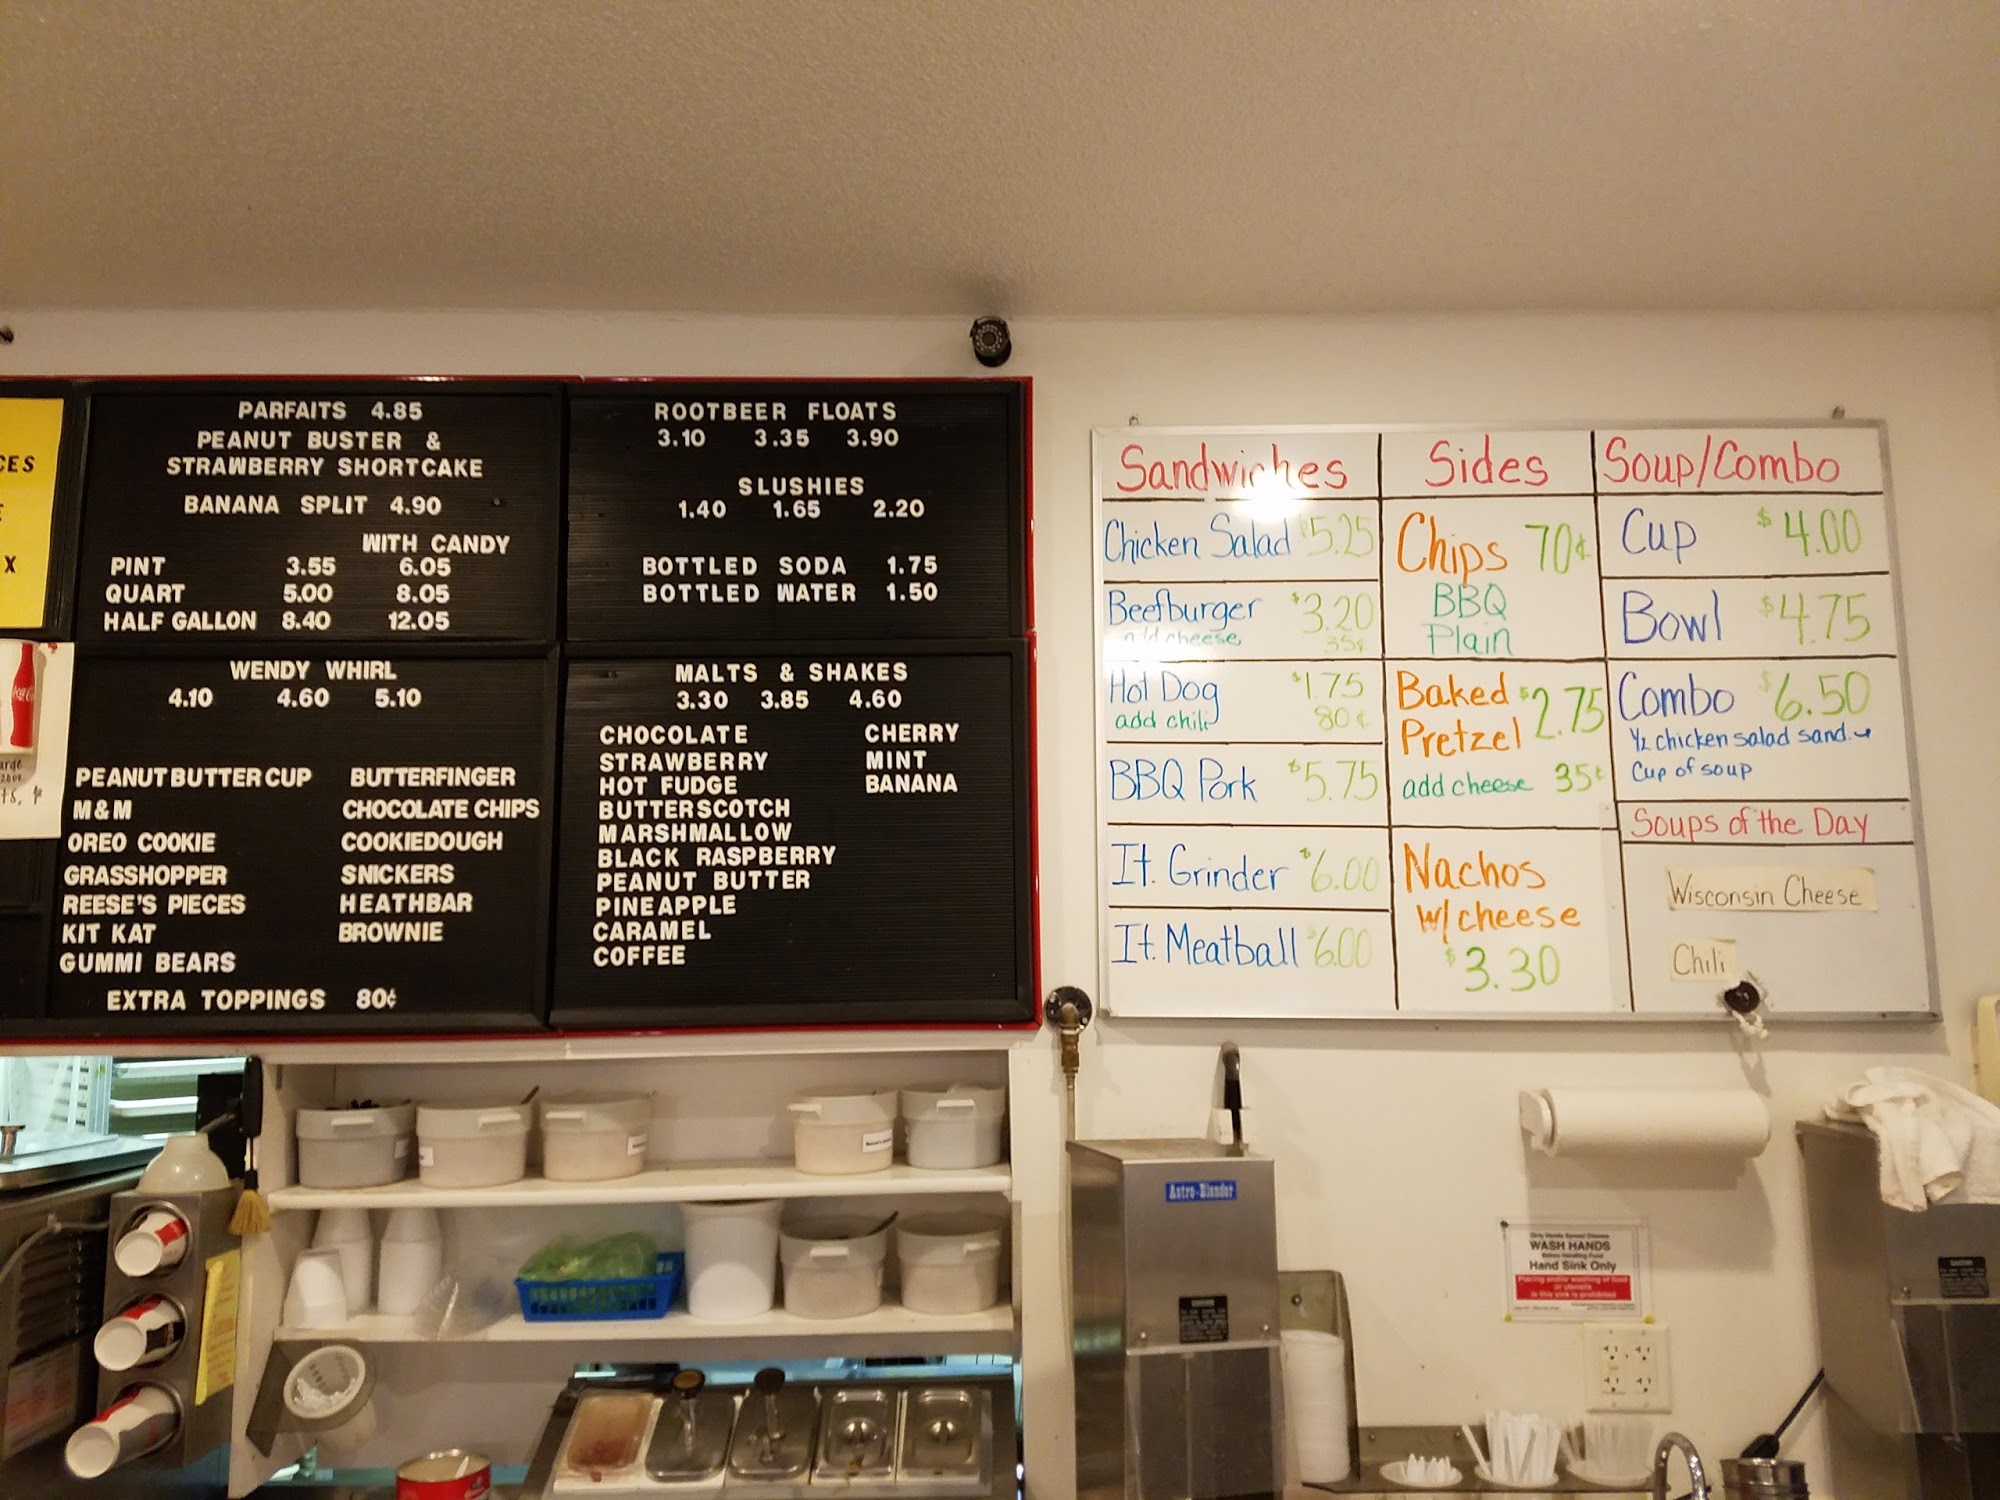 CES
X
PARFAITS 4.85
PEANUT BUSTER &
STRAWBERRY SHORTCAKE
BANANA SPLIT 4.90
WITH CANDY
PINT 3.55 6.05
QUART 5.00 8.05
HALF GALLON 8.40 12.05
ROOTBEER FLOATS
3.10 3.35 3.90
SLUSHIES
1.40 1.65 2.20
BOTTLED SODA 1.75
BOTTLED WATER 1.50
WENDY WHIRL
4.10 4.60 5.10
PEANUT BUTTER CUP BUTTERFINGER
M&M CHOCOLATE CHIPS
OREO COOKIE COOKIEDOUGH
GRASSHOPPER SNICKERS
REESE'S PIECES HEATHBAR
KIT KAT BROWNIE
GUMMI BEARS
EXTRA TOPPINGS 80¢
MALTS & SHAKES
3.30 3.85 4.60
CHOCOLATE CHERRY
STRAWBERRY MINT
HOT FUDGE BANANA
BUTTERSCOTCH
MARSHMALLOW
BLACK RASPBERRY
PEANUT BUTTER
PINEAPPLE
CARAMEL
COFFEE
Sandwiches
Chicken Salad $5.25
Beefburger $3.20
add cheese 35¢
Hot Dog $1.75
add chili 80¢
BBQ Pork $5.75
It. Grinder $6.00
It. Meatball $6.00
Sides
Chips 70¢
BBQ
Plain
Baked $2.75
Pretzel
add cheese 35¢
Nachos
w/cheese
$3.30
Soup/Combo
Cup $4.00
Bowl $4.75
Combo $6.50
½ chicken salad sand. &
Cup of soup
Soups of the Day
Wisconsin Cheese
Chili
Astro-Blender
Dirty Hands Spread Disease
WASH HANDS
Before Handling Food
Hand Sink Only
Placing and/or washing of food
or utensils
in this sink is prohibited
CAUTION
CAUTION